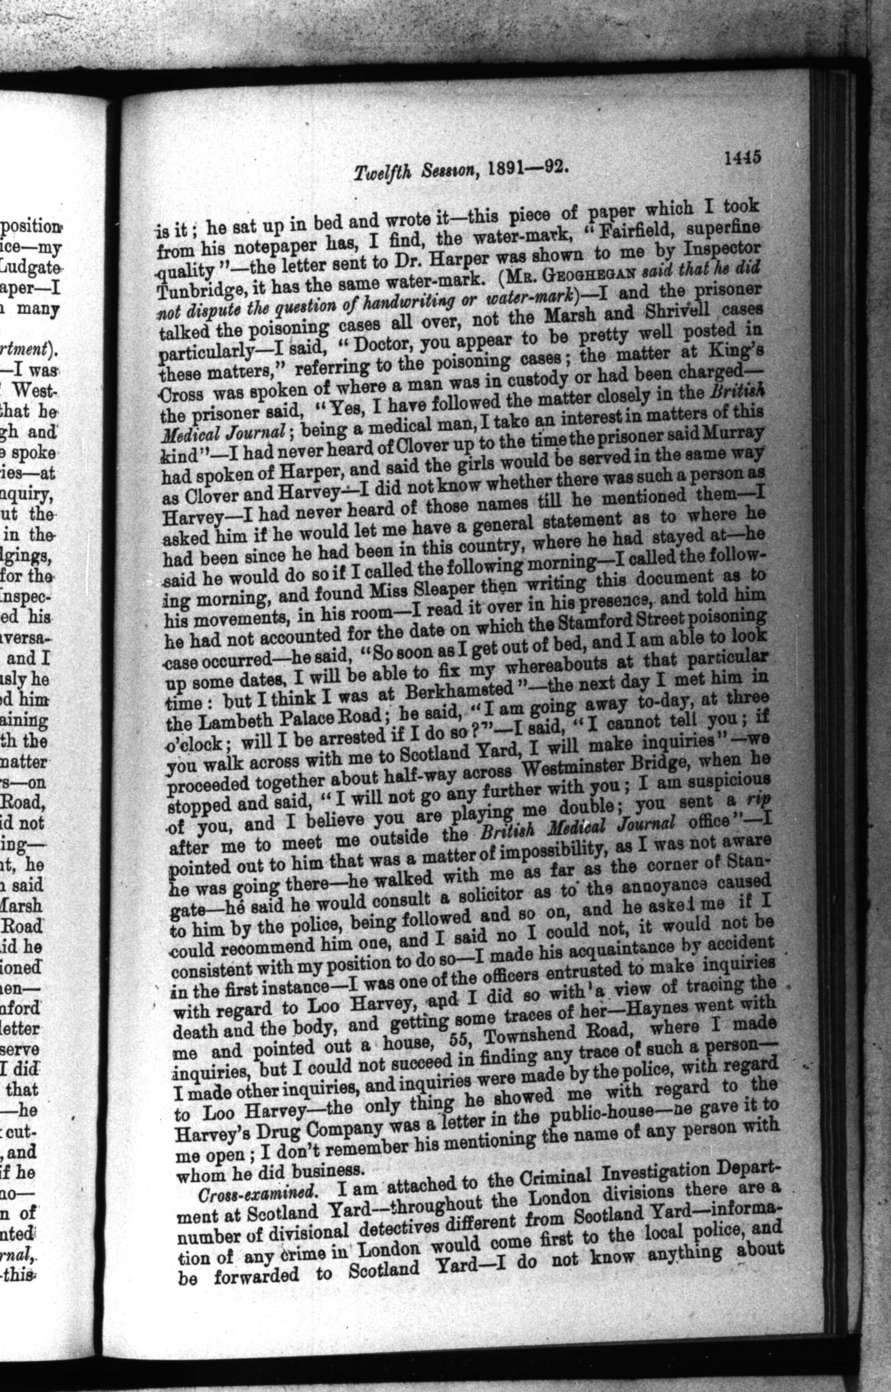 position
ice—my
Ludgate
aper—I
many
rtment).
—I was
West-
that he
gh and
e spoke
ries—at
nquiry,
ut the
in the
lgings,
for the
Inspec-
ed his
versa-
and I
usly he
ed him
aining
th the
matter
rs—on
Road,
id not
ing—
nt, he
n said
Marsh
Road
id he
ioned
nen—
nford
letter
serve
I did
that
—he
cut-
, and
if he
no—
n of
nted
rnal,
-this
Twelfth Session, 1891—92. 1445
is it; he sat up in bed and wrote it—this piece of paper which I took
from his notepaper has, I find, the water-mark, "Fairfield, superfine
quality"—the letter sent to Dr. Harper was shown to me by Inspector
Tunbridge, it has the same water-mark. (MR. GEOGHEGAN said that he did
not dispute the question of handwriting or water-mark)—I and the prisoner
talked the poisoning cases all over, not the Marsh and Shrivell cases
particularly—I said, "Doctor, you appear to be pretty well posted in
these matters," referring to the poisoning cases; the matter at King's
Cross was spoken of where a man was in custody or had been charged—
the prisoner said, "Yes, I have followed the matter closely in the British
Medical Journal; being a medical man, I take an interest in matters of this
kind"—I had never heard of Clover up to the time the prisoner said Murray
had spoken of Harper, and said the girls would be served in the same way
as Clover and Harvey—I did not know whether there was such a person as
Harvey—I had never heard of those names till he mentioned them—I
asked him if he would let me have a general statement as to where he
had been since he had been in this country, where he had stayed at—he
said he would do so if I called the following morning—I called the follow-
ing morning, and found Miss Sleaper then writing this document as to
his movements, in his room—I read it over in his presence, and told him
he had not accounted for the date on which the Stamford Street poisoning
case occurred—he said, "So soon as I get out of bed, and I am able to look
up some dates, I will be able to fix my whereabouts at that particular
time: but I think I was at Berkhamsted"—the next day I met him in
the Lambeth Palace Road; he said, "I am going away to-day, at three
o'clock; will I be arrested if I do so?"—I said, "I cannot tell you; if
you walk across with me to Scotland Yard, I will make inquiries"—we
proceeded together about half-way across Westminster Bridge, when he
stopped and said, "I will not go any further with you; I am suspicious
of you, and I believe you are playing me double; you sent a rip
after me to meet me outside the British Medical Journal office"—I
pointed out to him that was a matter of impossibility, as I was not aware
he was going there—he walked with me as far as the corner of Stan-
gate—he said he would consult a solicitor as to the annoyance caused
to him by the police, being followed and so on, and he asked me if I
could recommend him one, and I said no I could not, it would not be
consistent with my position to do so—I made his acquaintance by accident
in the first instance—I was one of the officers entrusted to make inquiries
with regard to Loo Harvey, and I did so with a view of tracing the
death and the body, and getting some traces of her—Haynes went with
me and pointed out a house, 55, Townshend Road, where I made
inquiries, but I could not succeed in finding any trace of such a person—
I made other inquiries, and inquiries were made by the police, with regard
to Loo Harvey—the only thing he showed me with regard to the
Harvey's Drug Company was a letter in the public-house—he gave it to
me open; I don't remember his mentioning the name of any person with
whom he did business.
Cross-examined. I am attached to the Criminal Investigation Depart-
ment at Scotland Yard—throughout the London divisions there are a
number of divisional detectives different from Scotland Yard—informa-
tion of any crime in London would come first to the local police, and
be forwarded to Scotland Yard—I do not know anything about